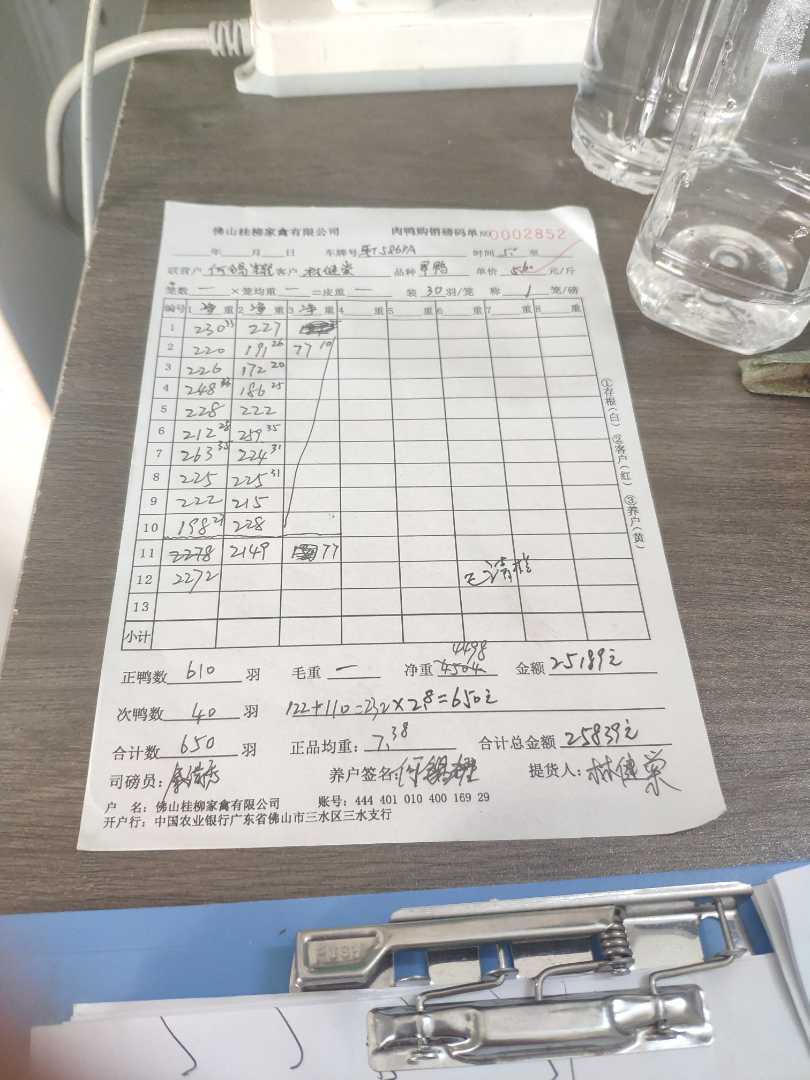 佛山桂柳家禽有限公司 肉鸭购销磅码单 № 0002852
年 月 日 车牌号 时间
客户 品种 单价 5.60 元/斤
笼数 一 ×笼均重 一 =皮重 一 装 30 羽/笼 称 1 笼/磅
编号 1 净 重 2 净 重 3 净 重 4 重 5 重 6 重 7 重 8 重
1 230 33 227
2 220 191 26 77 10
3 226 172 20
4 248 186 25
5 228 222
6 212 28 259 35
7 263 35 224 31
8 225 225 31
9 222 215
10 198 228
11 2278 2149 77
12 2272 已清栏
13
小计
4498
正鸭数 610 羽 毛重 一 净重 4504 金额 25189元
次鸭数 40 羽 122+110=232×2.8=650元
合计数 650 羽 正品均重: 7.38 合计总金额 25839元
司磅员: 养户签名: 何锡耀 提货人: 林健荣
户 名: 佛山桂柳家禽有限公司 账号: 444 401 010 400 169 29
开户行: 中国农业银行广东省佛山市三水区三水支行
①存根(白) ②客户(红) ③养户(黄)
PUSH